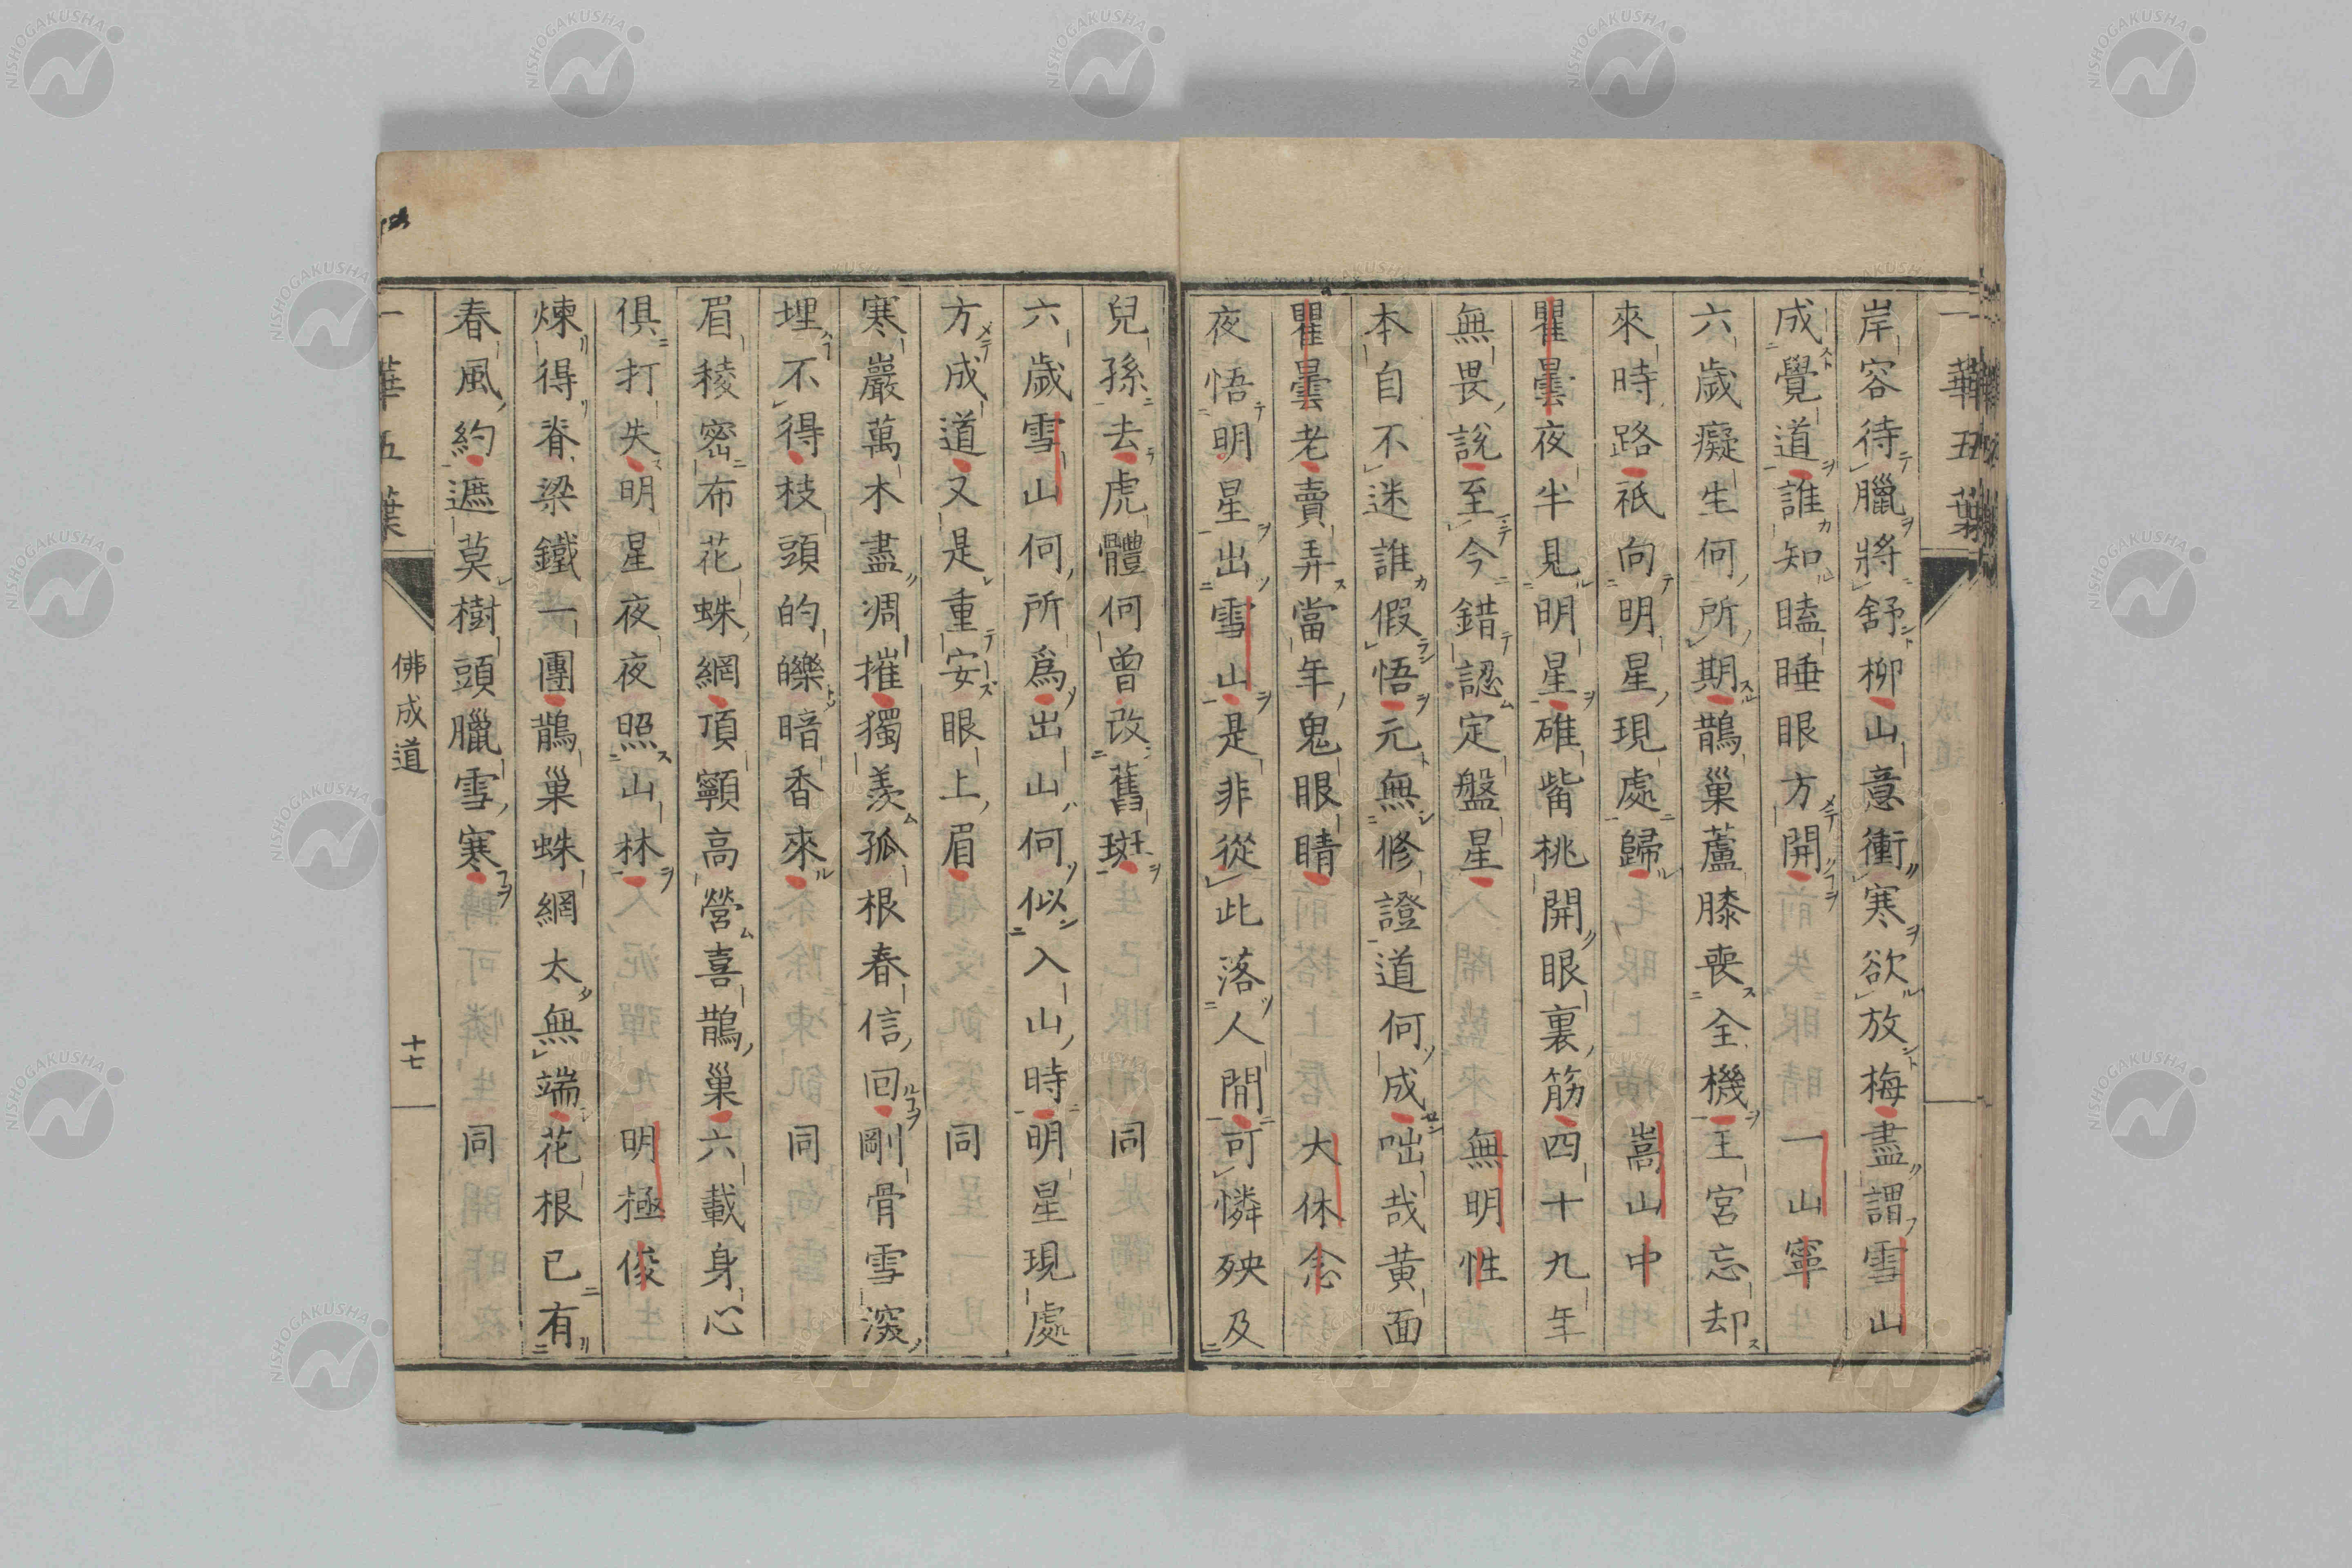 一華五葉
岸容待臘將舒柳山意衝寒欲放梅盡謂雪山
成覺道誰知瞌睡眼方開 一山寧
六歲癡坐何所期鵲巢蘆膝喪全機王宮忘却
來時路祇向明星現處歸 嵩山中
瞿曇夜半見明星碓觜桃開眼裏筋四十九年
無畏說至今錯認定盤星 無明性
本自不迷誰假悟元無修證道何成咄哉黃面
瞿曇老賣弄當年鬼眼睛 大休念
夜悟明星出雪山是非從此落人間可憐殃及
兒孫去虎體何曾改舊斑 同
六歲雪山何所爲出山何似入山時明星現處
方成道又是重安眼上眉 同
寒巖萬木盡凋摧獨羨孤根春信回剛骨雪深
埋不得枝頭的皪暗香來 同
眉稜密布花蛛網頂顖高營喜鵲巢六載身心
俱打失明星夜夜照山林 明極俊
煉得脊梁鐵一團鵲巢蛛網太無端花根已有
春風約遮莫樹頭臘雪寒 同
一華五葉 佛成道 十七
NISHOGAKUSHA